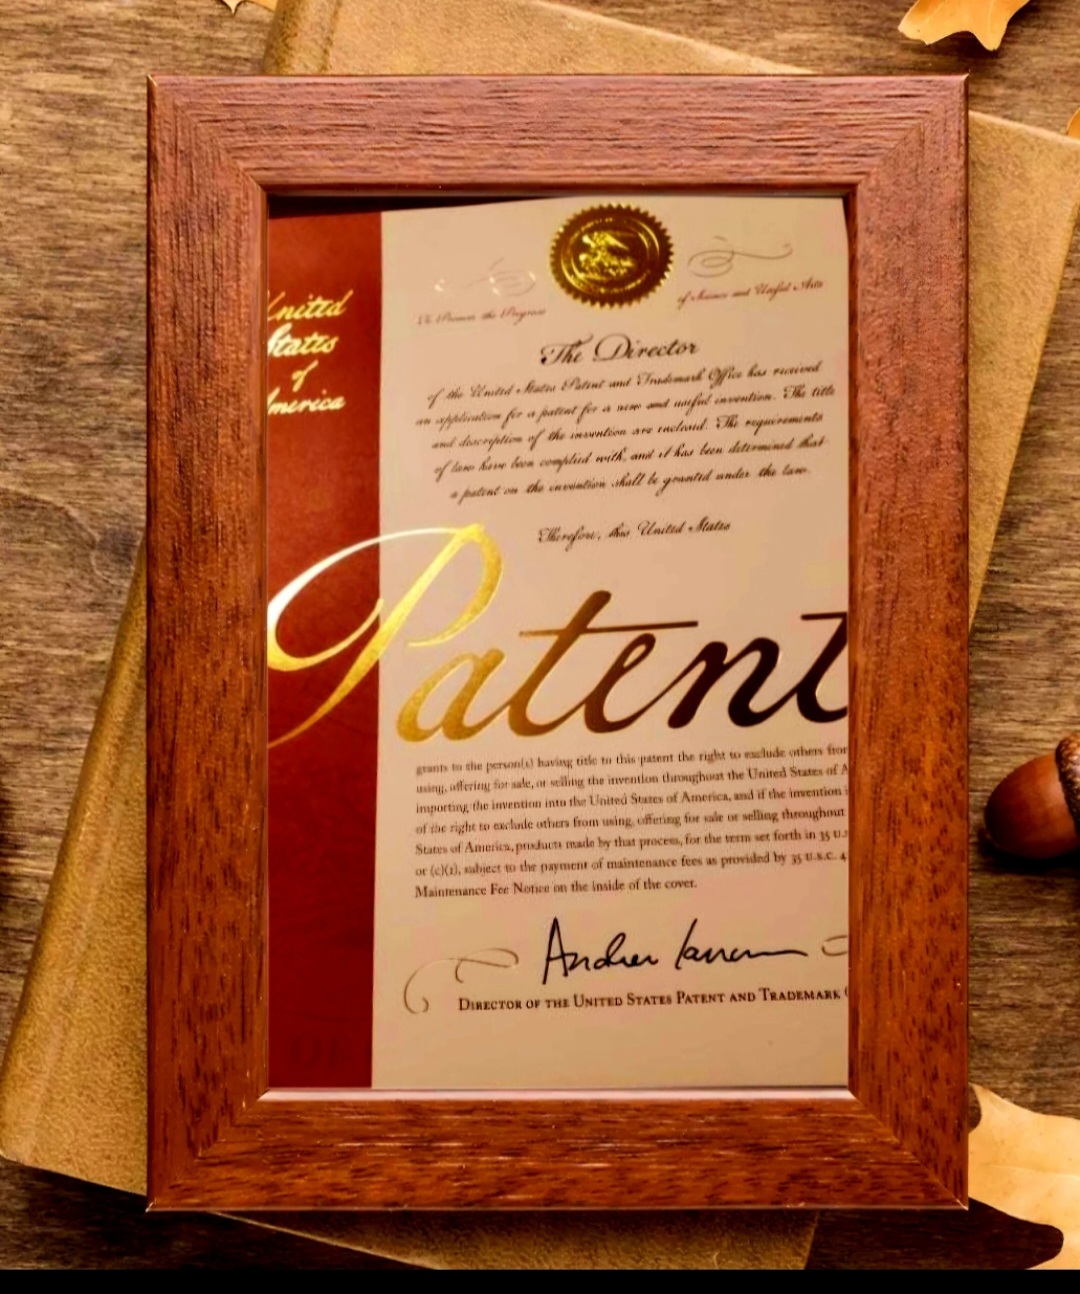 United
States
of
America
To Promote the Progress
of Science and Useful Arts
The Director
of the United States Patent and Trademark Office has received
an application for a patent for a new and useful invention. The title
and description of the invention are enclosed. The requirements
of law have been complied with, and it has been determined that
a patent on the invention shall be granted under the law.
Therefore, this United States
Patent
grants to the person(s) having title to this patent the right to exclude others from
using, offering for sale, or selling the invention throughout the United States of A
importing the invention into the United States of America, and if the invention i
of the right to exclude others from using, offering for sale or selling throughout
States of America, products made by that process, for the term set forth in 35 U.S
or (c)(1), subject to the payment of maintenance fees as provided by 35 U.S.C. 4
Maintenance Fee Notice on the inside of the cover.
Andrei Iancu
DIRECTOR OF THE UNITED STATES PATENT AND TRADEMARK O